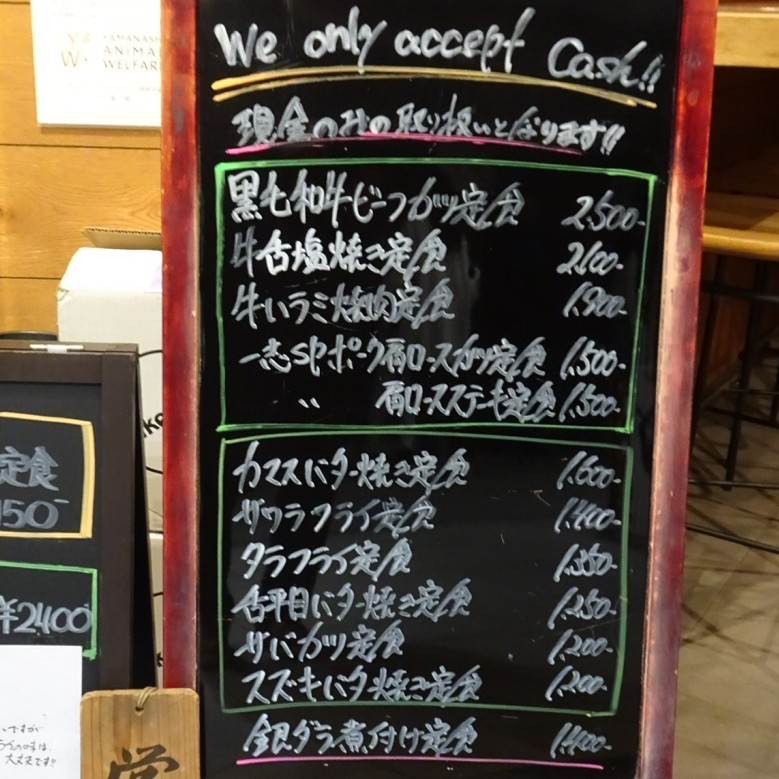 We only accept Cash!!
現金のみの取り扱いとなります!!
黒毛和牛ビーフカツ定食 2,500-
牛舌塩焼き定食 2,100-
牛ハラミ焼肉定食 1,900-
一志SPポーク肩ロースカツ定食 1,500-
〃 肩ロースステーキ定食 1,500-
カマスバター焼き定食 1,600-
サワラフライ定食 1,400-
タラフライ定食 1,350-
舌平目バター焼き定食 1,250-
サバカツ定食 1,200-
スズキバター焼き定食 1,200-
銀ダラ煮付け定食 1,400-
YAMANASHI
ANIMAL
WELFARE
定食
150-
¥2400
大丈夫です!!